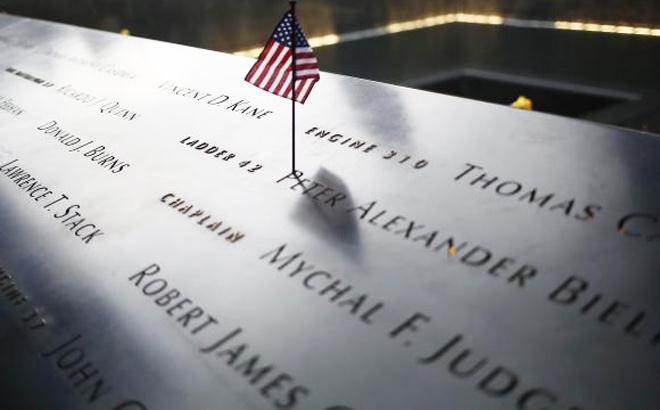 VINCENT D. KANE
RICARDO J. QUINN
ENGINE 310
THOMAS
DONALD J. BURNS
LADDER 42
PETER ALEXANDER BIEL
LAWRENCE T. STACK
CHAPLAIN
MYCHAL F. JUDG
ROBERT JAMES
JOHN